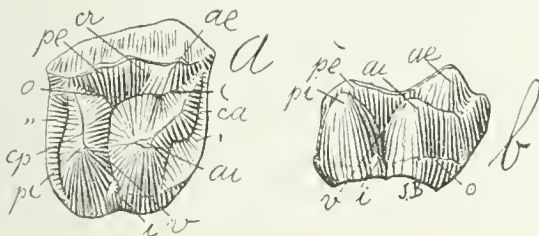 cr ae
pe
a
o (
" ca
cp '
pi ai
i v
pe ai ae
pi
b
v i J.B o